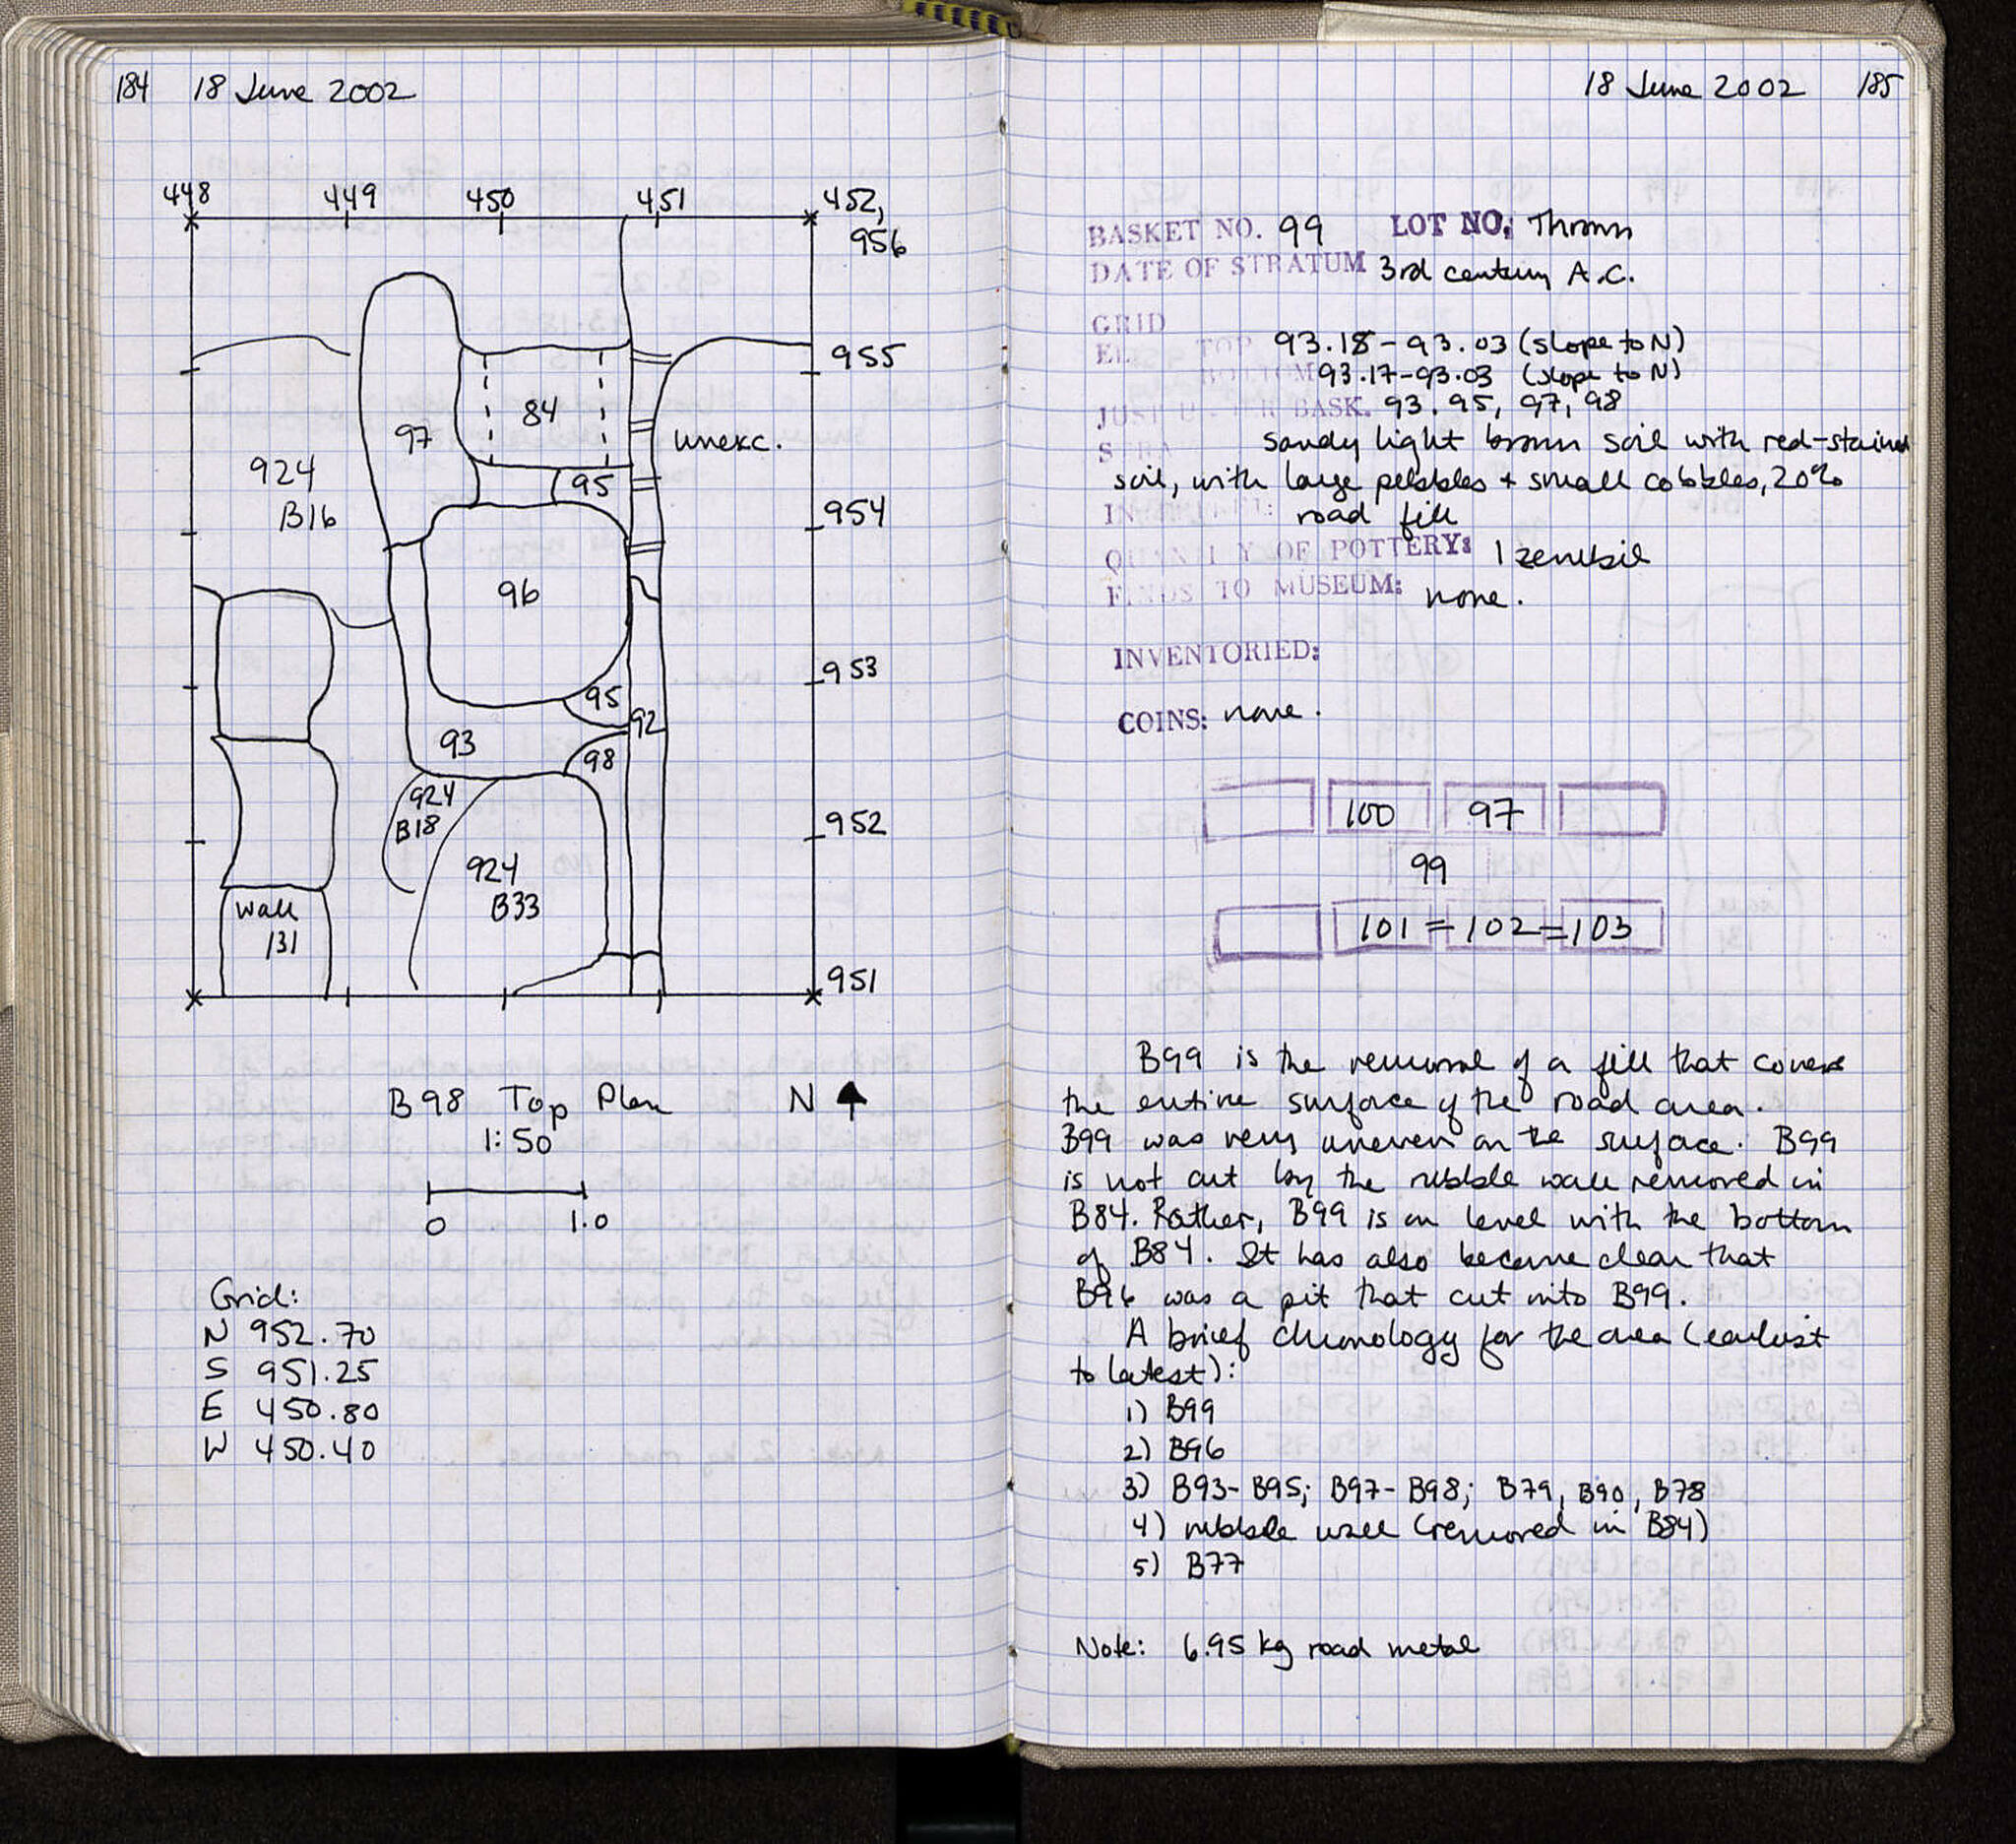 184 18 June 2002
448 449 450 451 452,
956
955
84
97
unexc.
924
B16
95
954
96
953
95
92
93
98
924
B18
952
924
B33
wall
131
951
B98 Top Plan N
1:50
0 1.0
Grid:
N 952.70
S 951.25
E 450.80
W 450.40
18 June 2002 185
BASKET NO. 99 LOT NO: Thrown
DATE OF STRATUM 3rd century A.C.
GRID
EL. TOP 93.18-93.03 (slope to N)
BOTTOM 93.17-93.03 (slope to N)
JUST U   R BASK. 93.95, 97, 98
S RA sandy light brown soil with red-stained
soil, with large pebbles + small cobbles, 20%
road fill
QUAN I Y OF POTTERY: 1 zembil
FINDS TO MUSEUM: none.
INVENTORIED:
COINS: none.
100 97
99
101 = 102 = 103
B99 is the removal of a fill that covers
the entire surface of the road area.
B99 was very uneven on the surface. B99
is not cut by the rubble wall removed in
B84. Rather, B99 is on level with the bottom
of B84. It has also become clear that
B96 was a pit that cut into B99.
A brief chronology for the area (earliest
to latest):
1) B99
2) B96
3) B93-B95; B97-B98; B79, B90, B78
4) rubble wall (removed in B84)
5) B77
Note: 6.95 kg road metal